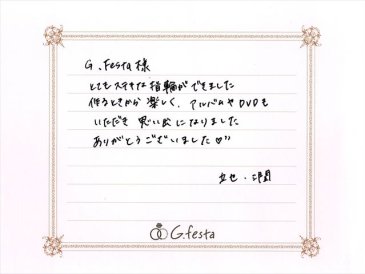 G.Festa様
とてもステキな指輪ができました
作るときから楽しく、アルバムやDVDも
いただき 思い出になりました
ありがとうございました♡"
G.festa